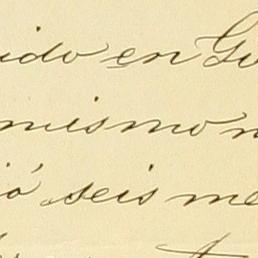 ido en Gu
mismo n
ió seis me